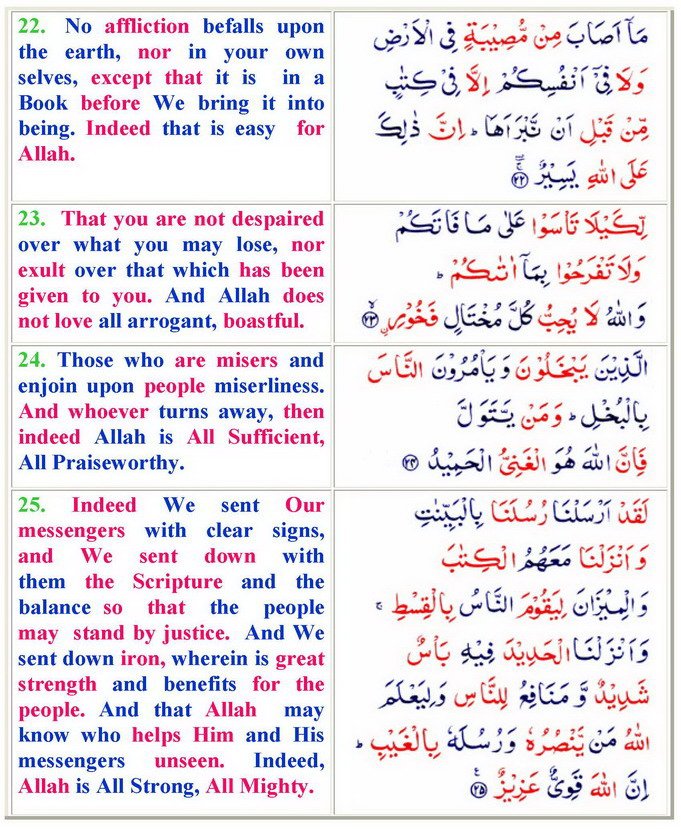 22. No affliction befalls upon
the earth, nor in your own
selves, except that it is in a
Book before We bring it into
being. Indeed that is easy for
Allah.
مَاۤ اَصَابَ مِنْ مُّصِيْبَةٍ فِى الْاَرْضِ
وَلَا فِىْۤ اَنْفُسِكُمْ اِلَّا فِىْ كِتٰبٍ
مِّنْ قَبْلِ اَنْ نَّبْرَاَهَا ؕ اِنَّ ذٰلِكَ
عَلَى اللّٰهِ يَسِيْرٌ ۚۖ ﴿۲۲﴾
23. That you are not despaired
over what you may lose, nor
exult over that which has been
given to you. And Allah does
not love all arrogant, boastful.
لِّكَيْلَا تَاْسَوْا عَلٰى مَا فَاتَكُمْ
وَلَا تَفْرَحُوْا بِمَاۤ اٰتٰٮكُمْ ؕ
وَاللّٰهُ لَا يُحِبُّ كُلَّ مُخْتَالٍ فَخُوْرِۙ ﴿۲۳﴾
24. Those who are misers and
enjoin upon people miserliness.
And whoever turns away, then
indeed Allah is All Sufficient,
All Praiseworthy.
الَّذِيْنَ يَبْخَلُوْنَ وَيَاْمُرُوْنَ النَّاسَ
بِالْبُخْلِ ؕ وَمَنْ يَّتَوَلَّ
فَاِنَّ اللّٰهَ هُوَ الْغَنِىُّ الْحَمِيْدُ ﴿۲۴﴾
25. Indeed We sent Our
messengers with clear signs,
and We sent down with
them the Scripture and the
balance so that the people
may stand by justice. And We
sent down iron, wherein is great
strength and benefits for the
people. And that Allah may
know who helps Him and His
messengers unseen. Indeed,
Allah is All Strong, All Mighty.
لَقَدْ اَرْسَلْنَا رُسُلَنَا بِالْبَيِّنٰتِ
وَاَنْزَلْنَا مَعَهُمُ الْكِتٰبَ
وَالْمِيْزَانَ لِيَقُوْمَ النَّاسُ بِالْقِسْطِ ۚ
وَاَنْزَلْنَا الْحَدِيْدَ فِيْهِ بَاْسٌ
شَدِيْدٌ وَّمَنَافِعُ لِلنَّاسِ وَلِيَعْلَمَ
اللّٰهُ مَنْ يَّنْصُرُهٗ وَرُسُلَهٗ بِالْغَيْبِ ؕ
اِنَّ اللّٰهَ قَوِىٌّ عَزِيْزٌ ﴿۲۵﴾